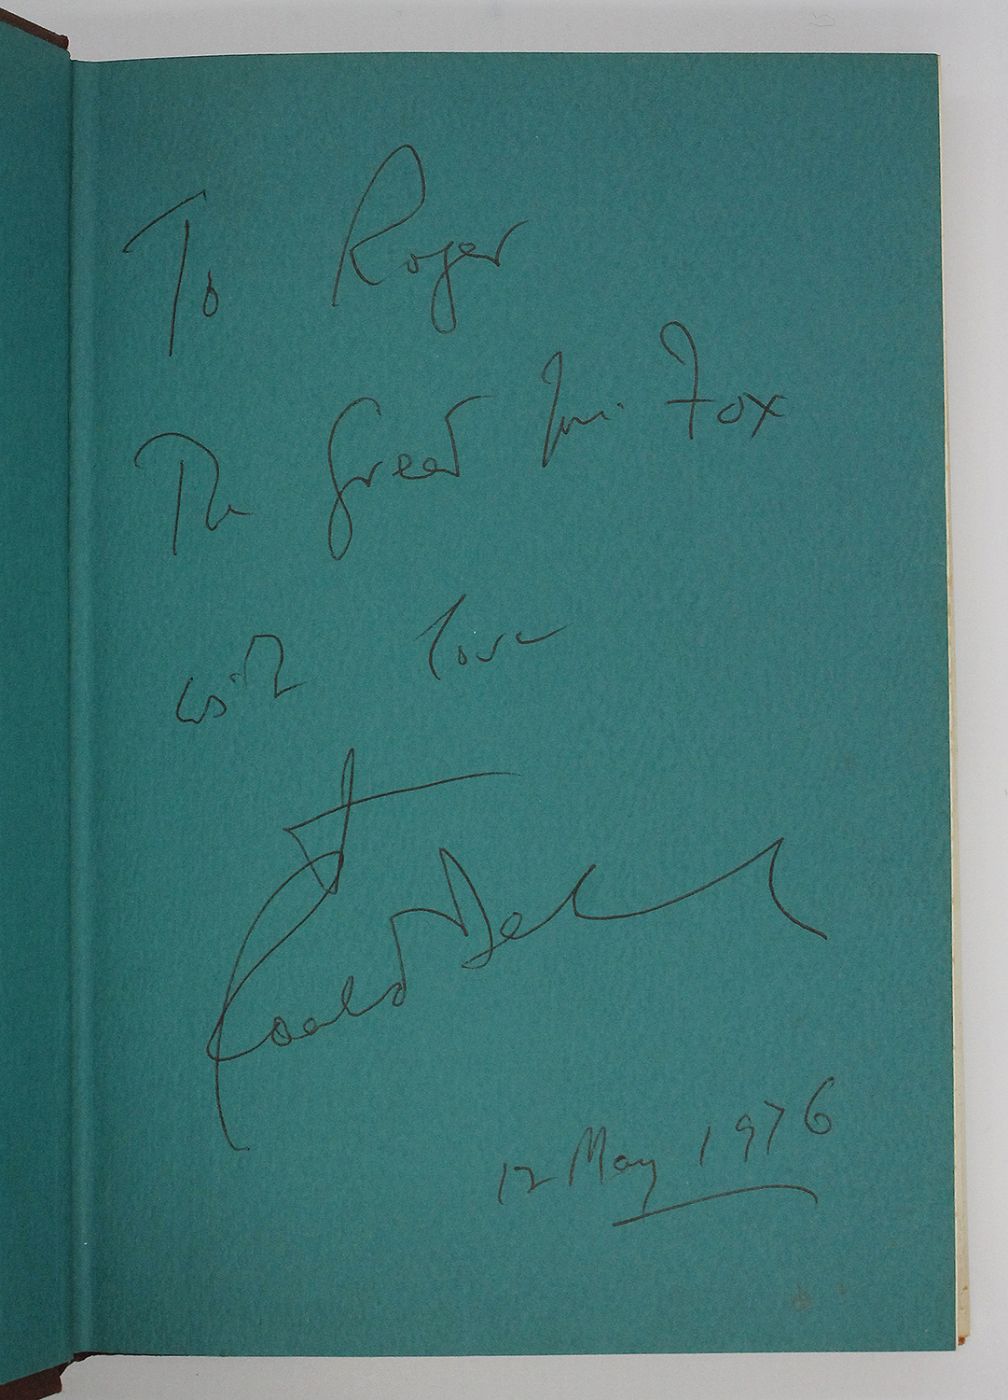 To Roger
The Great Fox
with love
Roald Dahl
12 May 1976